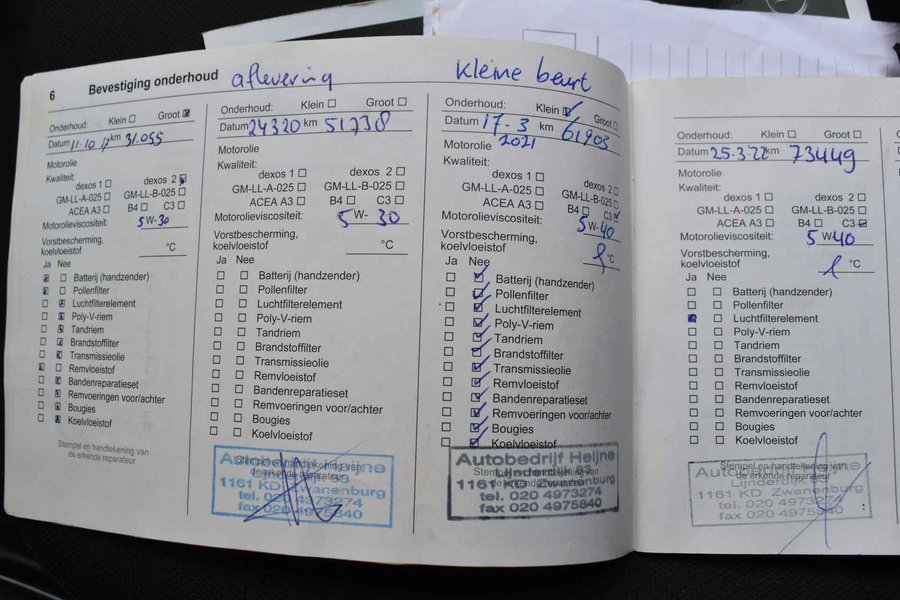 6 Bevestiging onderhoud
Onderhoud: Klein Groot
Datum 11.10 17 km 31.055
Motorolie
Kwaliteit:
dexos 1 dexos 2
GM-LL-A-025 GM-LL-B-025
ACEA A3 B4 C3
Motorolieviscositeit: 5W-30
Vorstbescherming,
koelvloeistof °C
Ja Nee
Batterij (handzender)
Pollenfilter
Luchtfilterelement
Poly-V-riem
Tandriem
Brandstoffilter
Transmissieolie
Remvloeistof
Bandenreparatieset
Remvoeringen voor/achter
Bougies
Koelvloeistof
Stempel en handtekening van
de erkende reparateur
aflevering
Onderhoud: Klein Groot
Datum 24320 km 51738
Motorolie
Kwaliteit:
dexos 1 dexos 2
GM-LL-A-025 GM-LL-B-025
ACEA A3 B4 C3
Motorolieviscositeit: 5 W- 30
Vorstbescherming,
koelvloeistof °C
Ja Nee
Batterij (handzender)
Pollenfilter
Luchtfilterelement
Poly-V-riem
Tandriem
Brandstoffilter
Transmissieolie
Remvloeistof
Bandenreparatieset
Remvoeringen voor/achter
Bougies
Koelvloeistof
Stempel en handtekening van
de erkende reparateur
1161 KD Zwanenburg
tel. 020 4973274
fax 020 4975840
kleine beurt
Onderhoud: Klein Groot
Datum 17-3 km 61903
Motorolie 2021
Kwaliteit:
dexos 1 dexos 2
GM-LL-A-025 GM-LL-B-025
ACEA A3 B4 C3
Motorolieviscositeit: 5W-40
Vorstbescherming,
koelvloeistof °C
Ja Nee
Batterij (handzender)
Pollenfilter
Luchtfilterelement
Poly-V-riem
Tandriem
Brandstoffilter
Transmissieolie
Remvloeistof
Bandenreparatieset
Remvoeringen voor/achter
Bougies
Koelvloeistof
Autobedrijf Heijne
Stempel en handtekening van
de erkende reparateur
1161 KD Zwanenburg
tel. 020 4973274
fax 020 4975840
Onderhoud: Klein Groot
Datum 25.3-22 km 73449
Motorolie
Kwaliteit:
dexos 1 dexos 2
GM-LL-A-025 GM-LL-B-025
ACEA A3 B4 C3
Motorolieviscositeit: 5 W40
Vorstbescherming,
koelvloeistof °C
Ja Nee
Batterij (handzender)
Pollenfilter
Luchtfilterelement
Poly-V-riem
Tandriem
Brandstoffilter
Transmissieolie
Remvloeistof
Bandenreparatieset
Remvoeringen voor/achter
Bougies
Koelvloeistof
Stempel en handtekening van
de erkende reparateur
Autobedrijf
Lijnderdijk
1161 KD Zwanenburg
tel. 020 4973274
fax 020 4975840